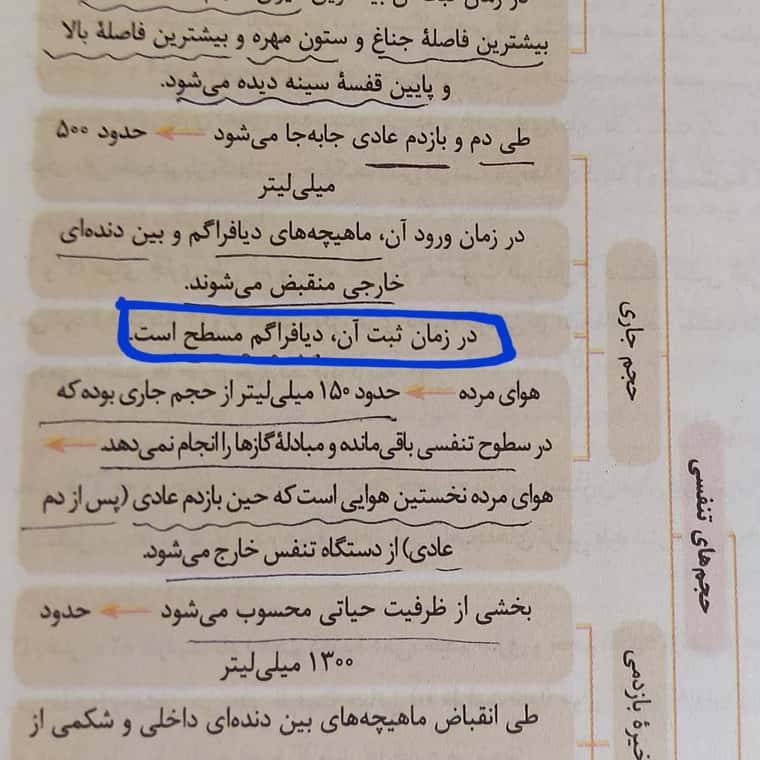 در زمان ثبت آن
بیشترین فاصلهٔ جناغ و ستون مهره و بیشترین فاصلهٔ بالا
و پایین قفسهٔ سینه دیده می‌شود.
طی دم و بازدم عادی جابه‌جا می‌شود ← حدود ۵۰۰
میلی‌لیتر
در زمان ورود آن، ماهیچه‌های دیافراگم و بین دنده‌ای
خارجی منقبض می‌شوند.
در زمان ثبت آن، دیافراگم مسطح است.
هوای مرده ← حدود ۱۵۰ میلی‌لیتر از حجم جاری بوده که
در سطوح تنفسی باقی‌مانده و مبادلهٔ گازها را انجام نمی‌دهد. ←
هوای مرده نخستین هوایی است که حین بازدم عادی (پس از دم
عادی) از دستگاه تنفس خارج می‌شود.
حجم جاری
حجم‌های تنفسی
بخشی از ظرفیت حیاتی محسوب می‌شود ← حدود
۱۳۰۰ میلی‌لیتر
طی انقباض ماهیچه‌های بین دنده‌ای داخلی و شکمی از
ذخیرهٔ بازدمی